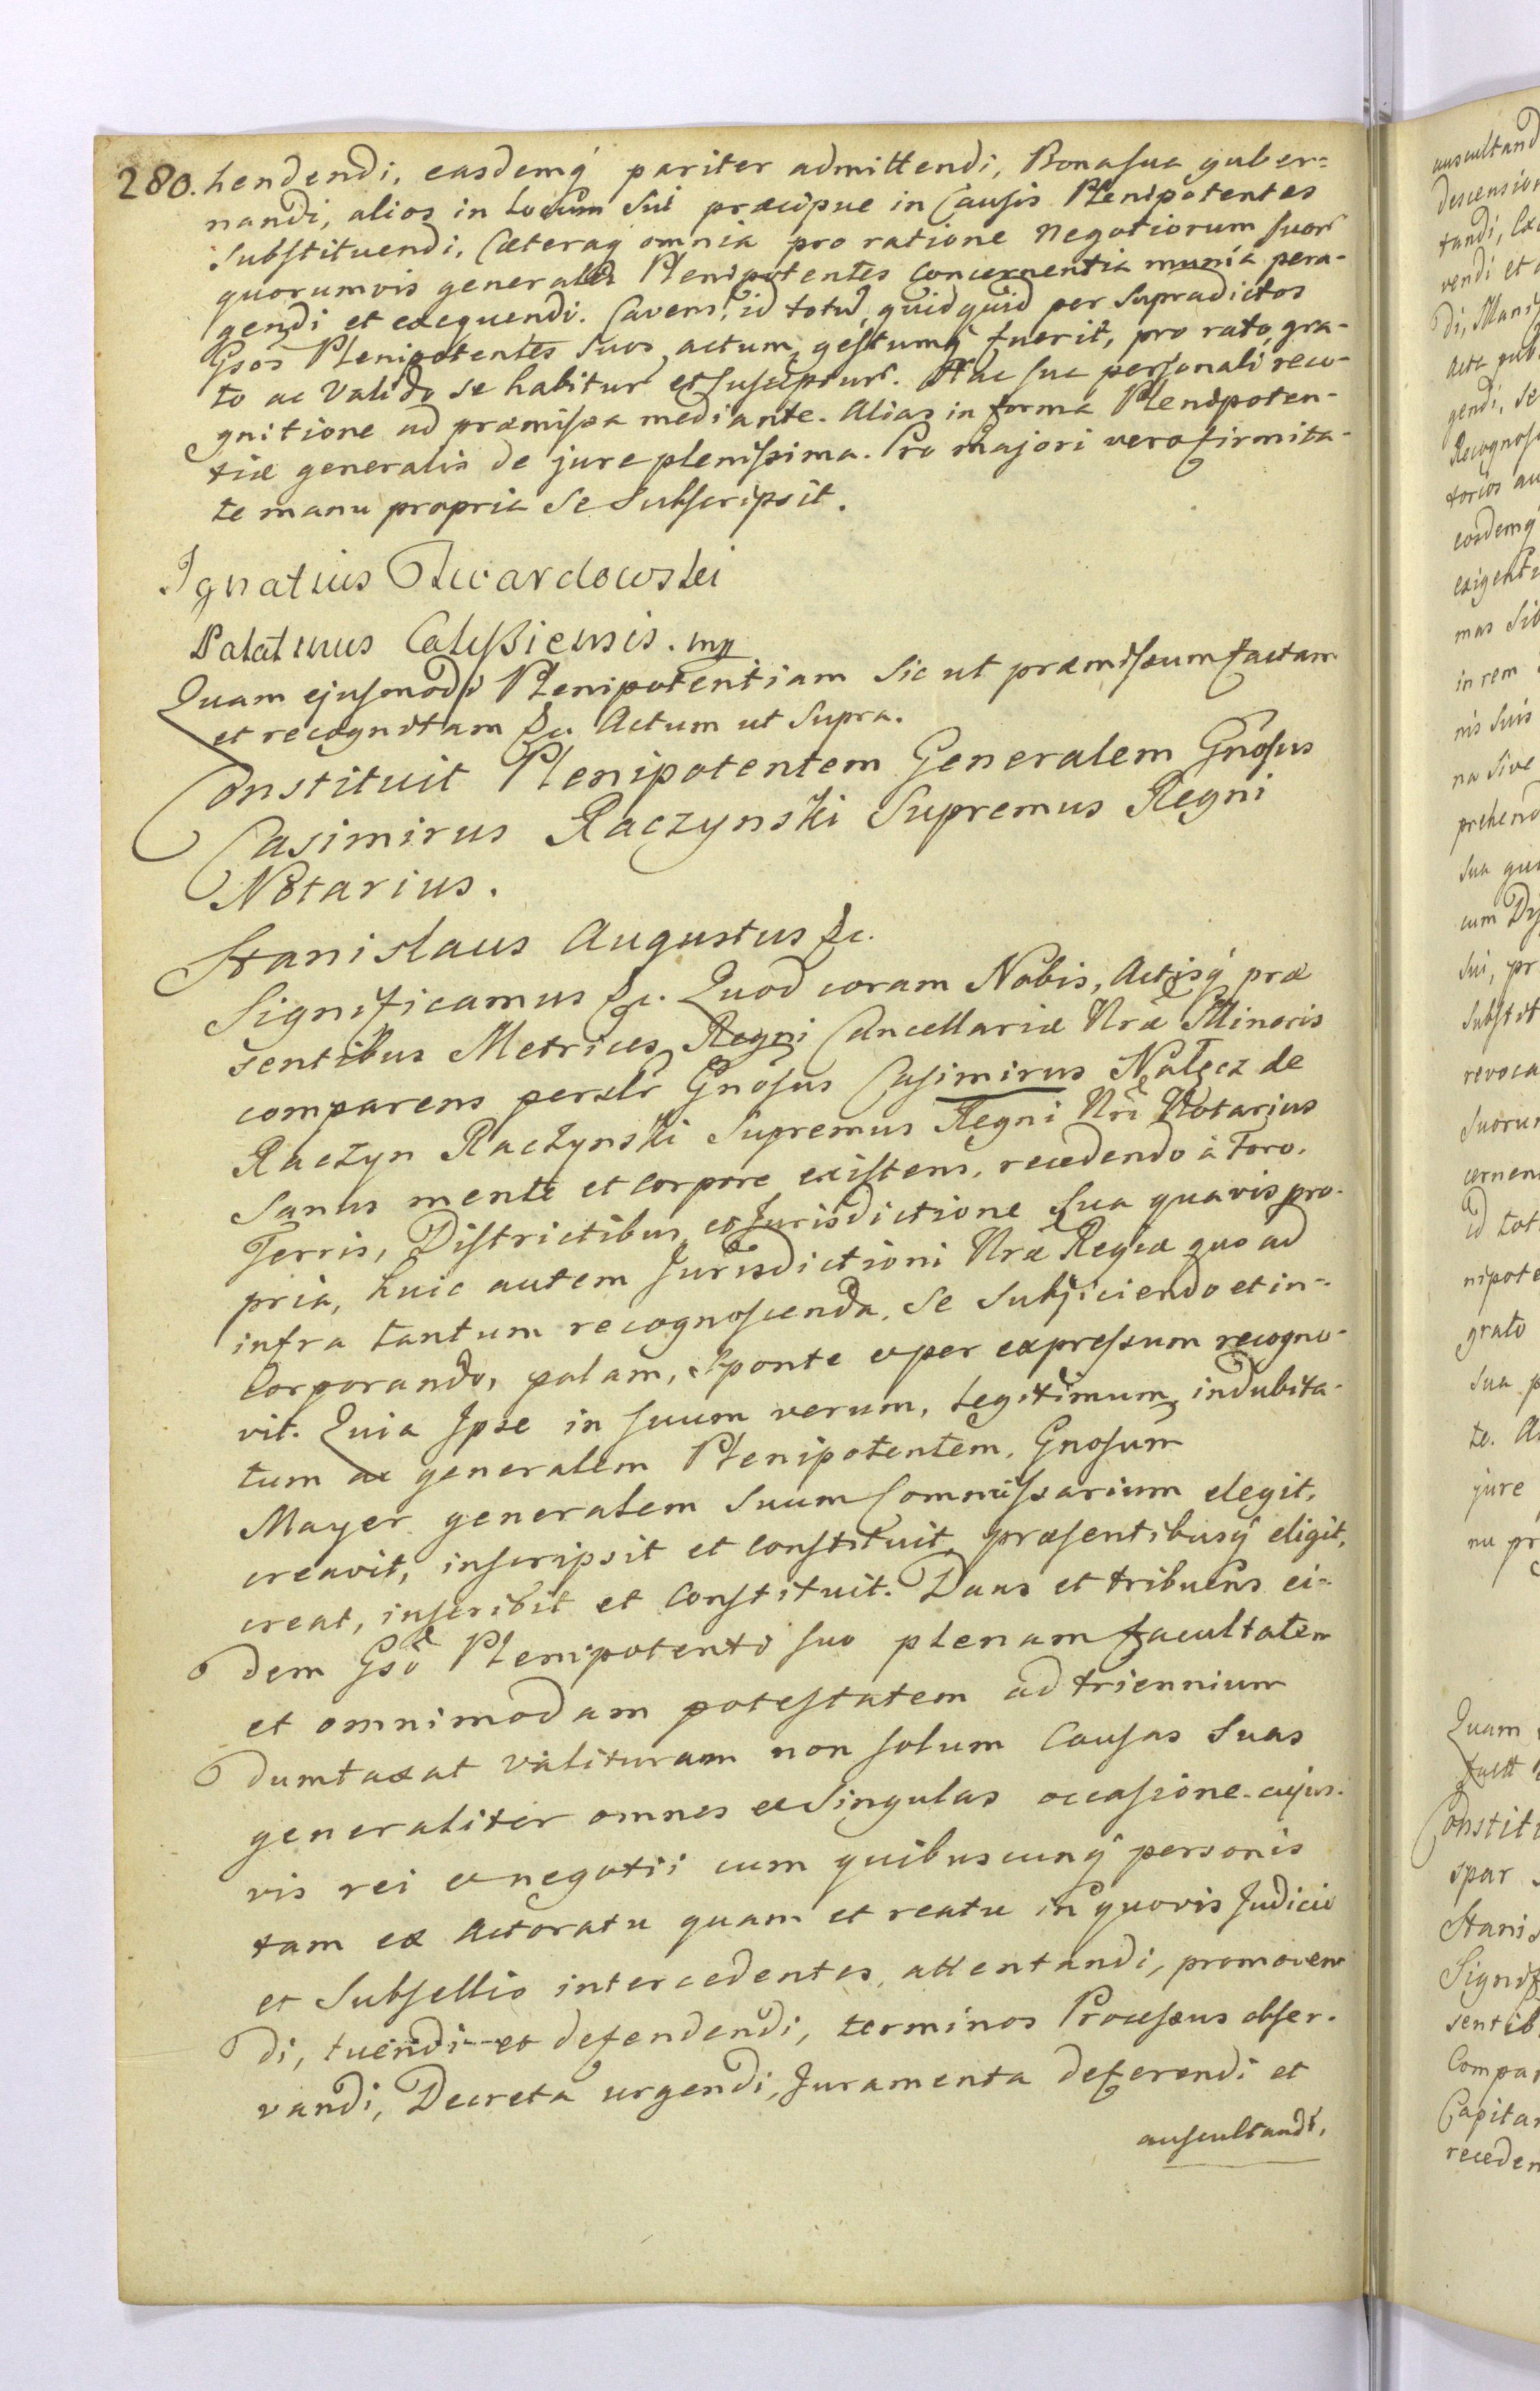 280. hendendi, easdemq́ pariter admittendi, Bona sua guber=
nandi, alios in Locum Sui præcipue in Causis Plenipotentes
substituendi, Cæteraq́ omnia pro ratione Negotiorum suor̃
quorumvis generales Plenipotentes concernentia munia pera-
gendi et exequendi. Cavens, id totũ, quidquid per Supradictos
Gsos Plenipotentes Suos actum, gestumq́ fuerit, pro rato, gra-
to ac Valido se habitur̃ et suscepturũ. Hac sua personali reco-
gnitione ad præmissa mediante. Alias in forma Plenipoten-
tiæ generalis de jure plenissima. Pro majori vero firmita-
te manu propria Se Subscripsit.
Ignatius Twardowski
Palatinus Calissiensis. mp
Quam ejusmodi Plenipotentiam Sic ut præmissum factam
et recognitam &c. Actum ut Supra.
Constituit Plenipotentem Generalem Gñosus
Casimirus Raczynski Supremus Regni
Notarius.
Stanislaus Augustus &c.
Significamus &c. Quod coram Nobis, Actisq́ præ
sentibus Metrices Regni Cancellariæ Nræ Minoris
comparens personalr̃ Gñosus Casimirus Nałęcz de
Raczyn Raczynski Supremus Regni Nri Notarius
Sanus mente et Corpore existens, recedendo à Foro,
Terris, Districtibus, et Jurisdictione Sua quavis pro-
pria, huic autem Jurisdictioni Nræ Regiæ quo ad
infra tantum recognoscenda, Se Subjiciendo et in-
corporando, palam, Sponte et per expressum recogno-
vit. Quia Ipse in suum verum, Legitimum, indubita-
tum ac generalem Plenipotentem, Gnosum
Mayer generalem Suum Commissarium elegit,
creavit, inscripsit et Constituit, præsentibusq́ eligit,
creat, inscribit et Constituit. Dans et tribuens ei-
dem Gsõ Plenipotenti suo plenam facultatem
et omnimodam potestatem ad triennium
dumtaxat valituram non solum Causas Suas
generaliter omnes et Singulas occasione cujus-
vis rei et negotii cum quibuscunq́ personis
tam ex Actoratu quam et reatu in quovis Judicio
et Subsellio intercedentes, attentandi, promoven
di, tuendi et defendendi, terminos Processus obser-
vandi, Decreta urgendi, Juramenta deferendi et
auscultandi,
auscultand
descension
tandi, Ex
vendi et
di, Mani
Acta pub
gendi, Se
Recognos
torios au
eosdemq́
exigenti
mas Sib
in rem
nis Suis
na Sive
prehend
Sua gu
cum
Sui, pr
Substit
revoca
Suorum
cernen
id tot
nipote
grato
sua p
te. A
jure
nu pr
Quam
Constit
spar
Stanis
Signif
sentib
Compar
Capita
receden